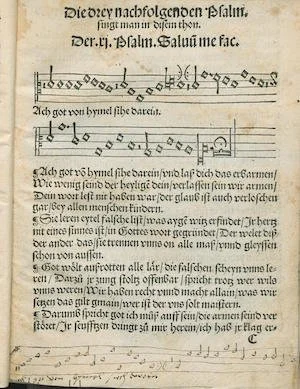 Die drey nachfolgenden Psalm.
singt man in disem thon.
Der .xj. Psalm. Saluū me fac.
Ach got von hymel sihe darein.
¶ Ach got vō hymel sihe darein/vnd laß dich das erbarmen/
Wie wenig seind der heyligē dein/verlassen sein wir armen/
Dein wort leßt nit haben war/der glaub ist auch verloschen
gar/bey allen menschen kindern.
¶ Sie leren eytel falsche list/was aygē witz erfindet/Jr hertz
nit eines sinnes ist/in Gottes wort gegründet/Der welet diß
der ander das/sie trennen vnns on alle maß/vnnd gleyssen
schon von aussen.
¶ Got wölt außrotten alle lär/die falschen scheyn vnns le-
ren/Darzů jr zung stoltz offenbar/spricht trotz wer wils
vnns weren/Wir haben recht vnnd macht allain/was wir
setzen das gilt gmain/wer ist der vns solt maistern.
¶ Darumb spricht got ich můß auff sein/die armen seind ver
störet/Jr seufftzen dringt zů mir herein/ich hab jr klag er-
C